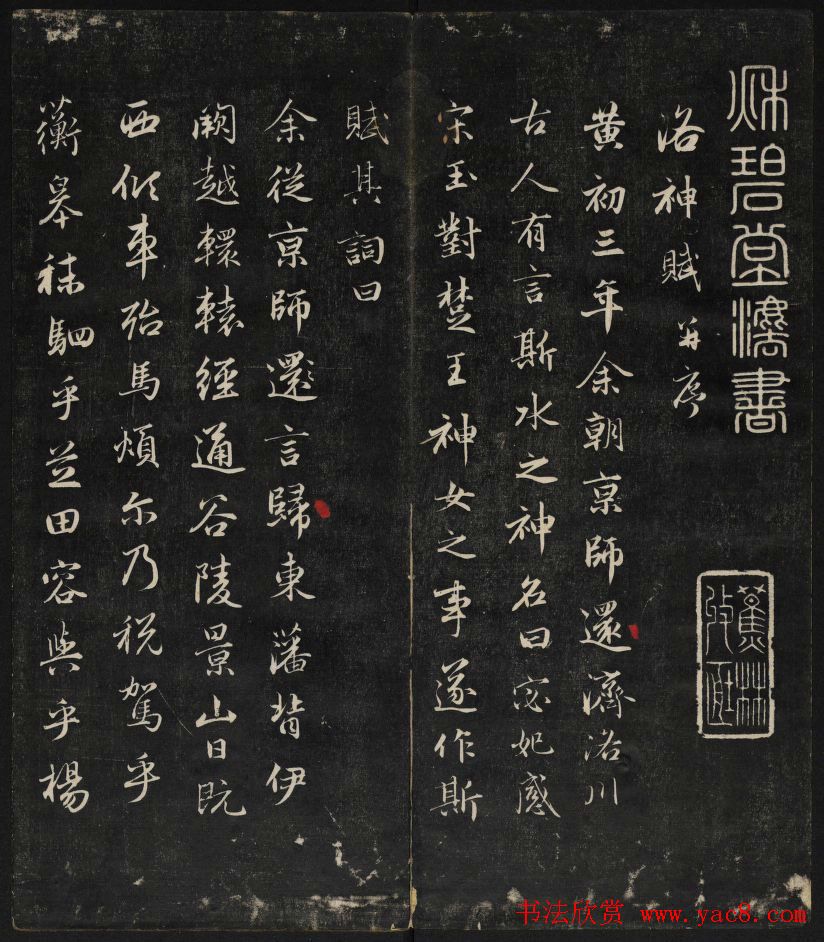 秌碧堂灋書
蕉林
洛神賦 并序
黃初三年余朝亰師還濟洛川
古人有言斯水之神名曰宓妃感
宋玉對楚王神女之事遂作斯
賦其詞曰
余從亰師還言歸東藩背伊
闕越轘轅經通谷陵景山日既
西傾車殆馬煩尓乃稅駕乎
蘅皋秣駟乎芝田容與乎楊
书法欣赏 www.yac8.com